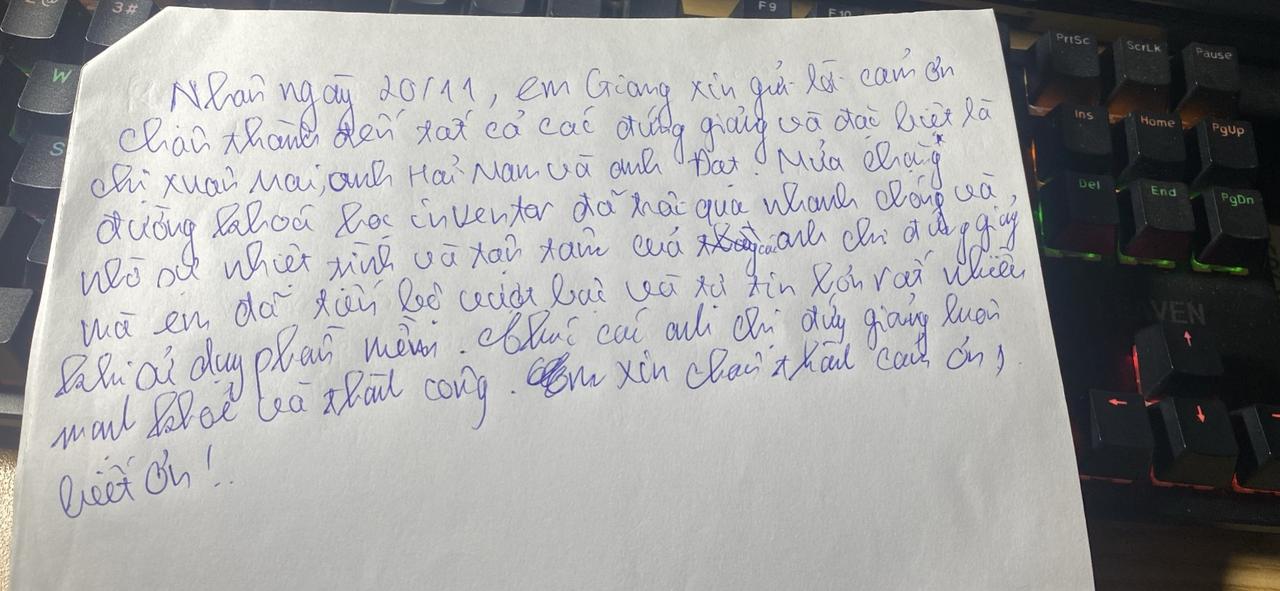 Nhân ngày 20/11, em Giang xin gửi lời cảm ơn
chân thành đến tất cả các đứng giảng và đặc biệt là
chị Xuân Mai, anh Hải Nam và anh Đạt. Nửa chặng
đường khoá học inventor đã trôi qua nhanh chóng và
nhờ sự nhiệt tình và tận tâm của các anh chị đứng giảng
mà em đã tiến bộ vượt bậc và tự tin hơn rất nhiều
khi sử dụng phần mềm. Chúc các anh chị đứng giảng luôn
mạnh khoẻ và thành công. Em xin chân thành cảm ơn,
biết ơn!
3#
F9
F10
W
S
PrtSc
ScrLK
Pause
Ins
Home
PgUp
Del
End
PgDn
VEN